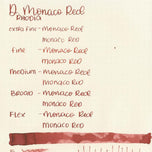 D. Monaco Red
RHODIA
extra fine - Monaco Red
Monaco Red
fine - Monaco Red
Monaco Red
medium - Monaco Red
Monaco Red
BROAD - Monaco Red
Monaco Red
FLEX - Monaco Red
Monaco Red